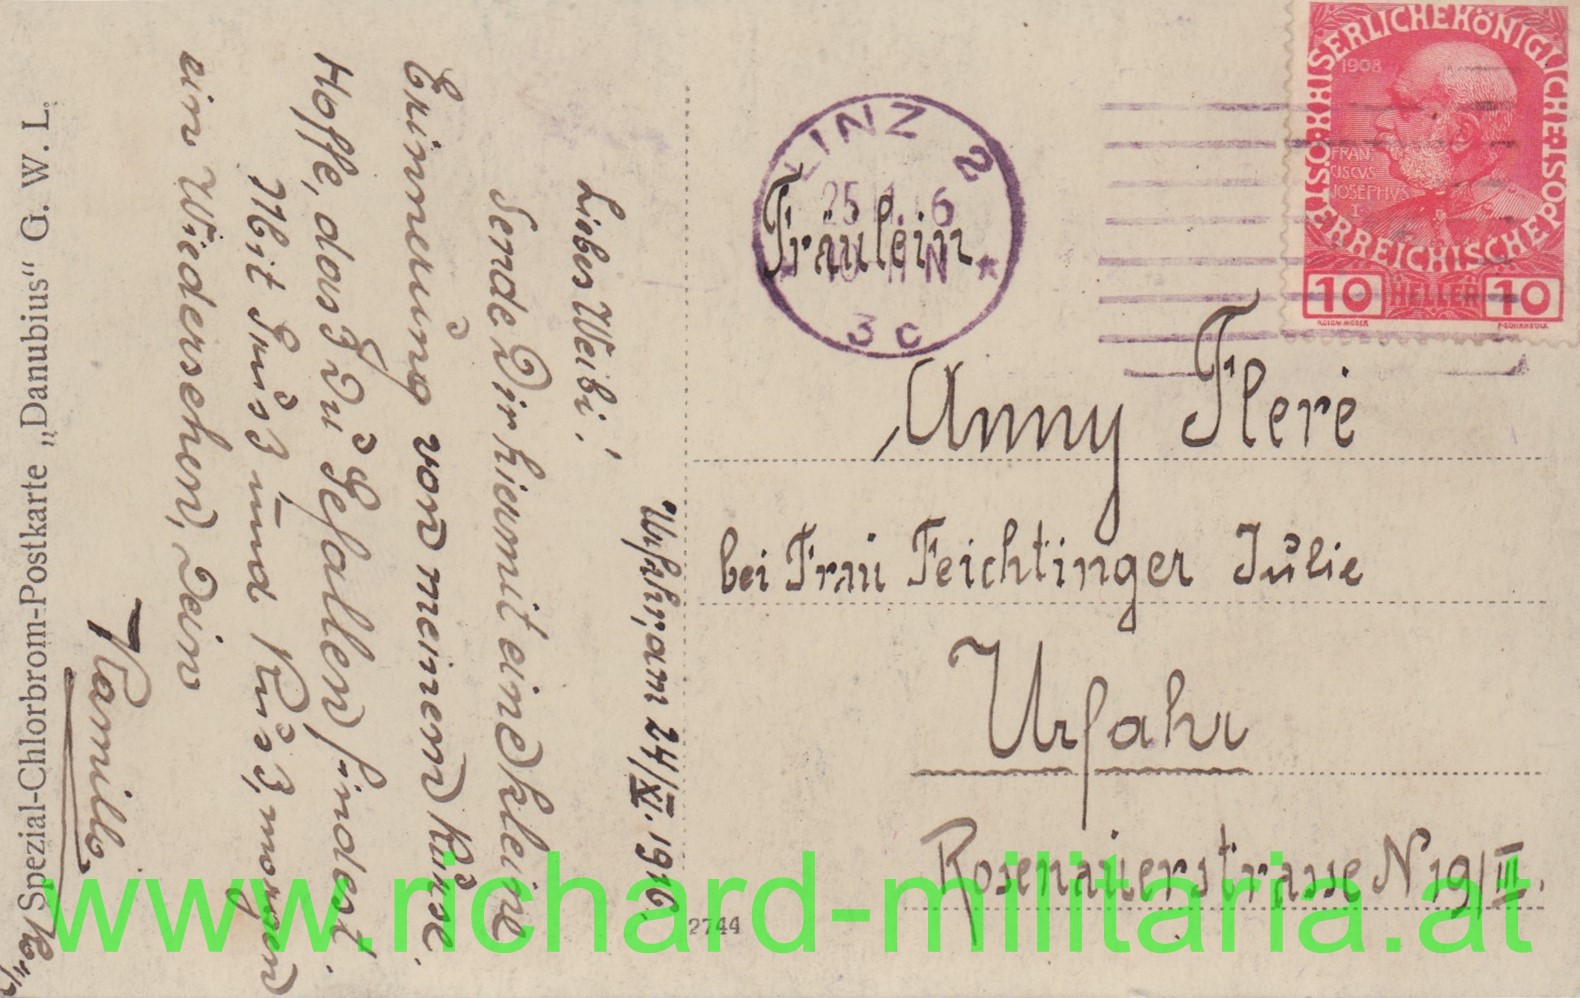 Spezial-Chlorbrom-Postkarte „Danubius“ G. W. L.
Urfahr, am 24/XI. 1916.
Liebes Weibi!
Sende Dir hiermit eine kleine
Erinnerung von meinem Kurse.
Hoffe, dass Du Gefallen findest.
Mit Gruss und Kuss, morgen
ein Wiedersehen, Dein
Kamillo
KAISERLICHE KÖNIGLICHE
ÖSTERREICHISCHE
1908
FRAN
CISCVS
JOSEPHVS
I
10 HELLER 10
LINZ 2
25
3c
Fräulein
Anny Fleré
bei Frau Feichtinger Julie
Urfahr
Rosenauerstrasse N 19/II.
2744
www.richard-militaria.at